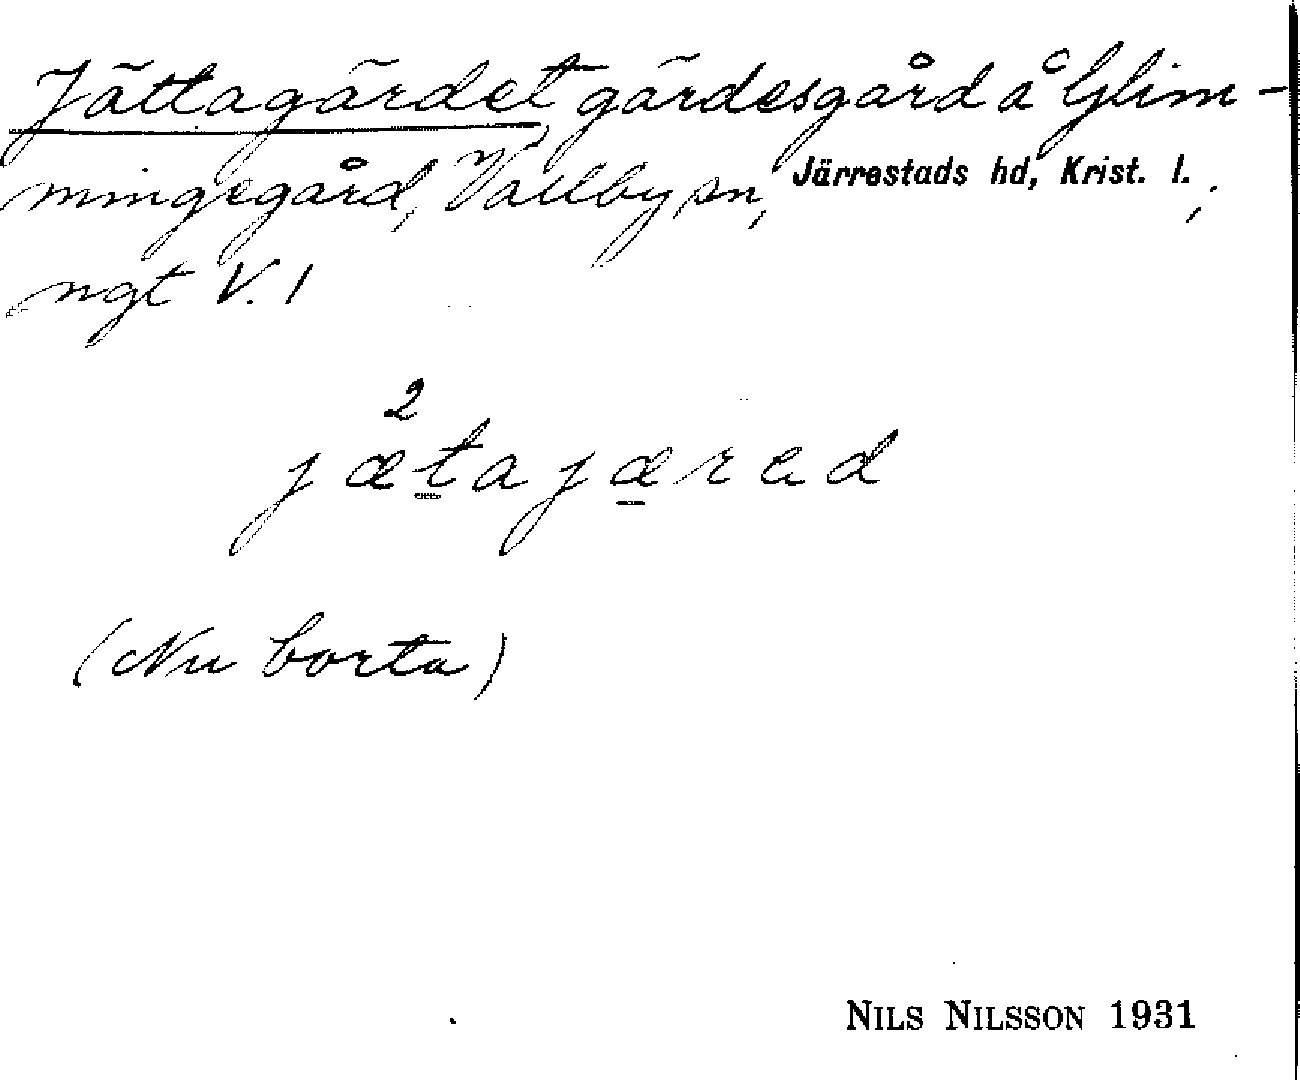 Jättagärdet, gärdesgård å Glim-
mingegård, Vallby sn, Järrestads hd, Krist. l.;
ngt V. l
2
jætajæred
(Nu borta)
NILS NILSSON 1931